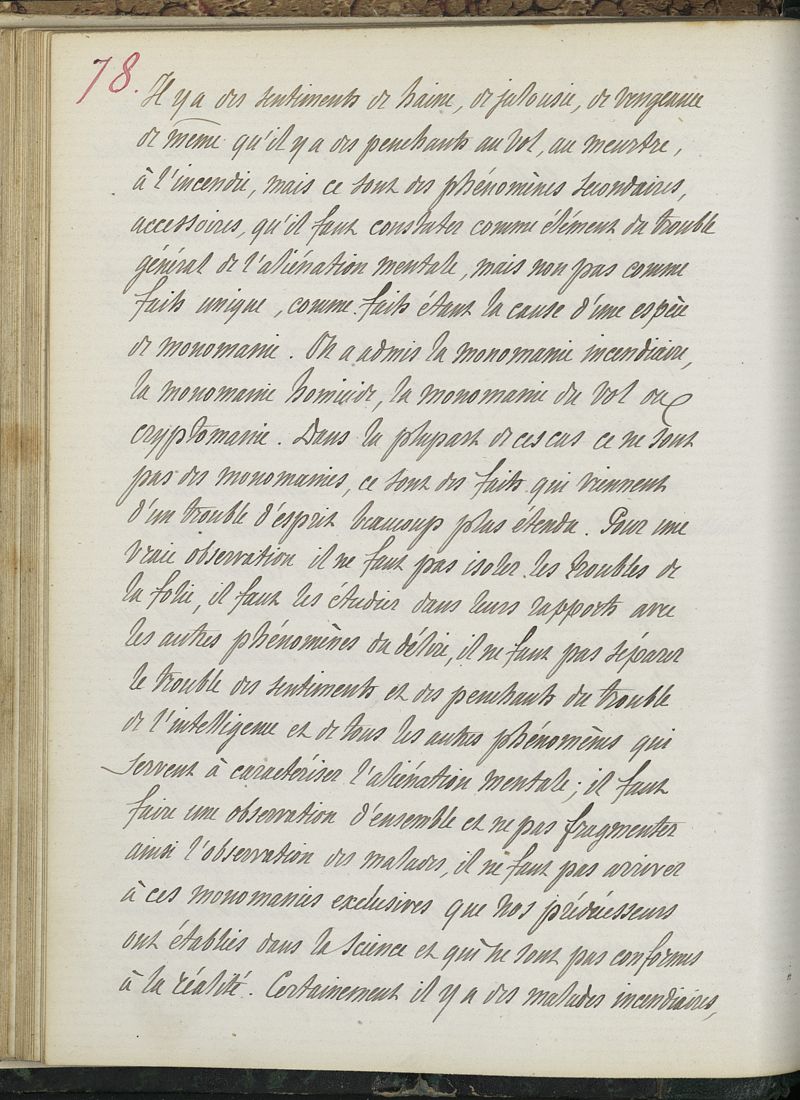 78.
Il y a des sentiments de haine, de jalousie, de vengeance
de même qu'il y a des penchants au vol, au meurtre,
à l'incendie, mais ce sont des phénomènes secondaires,
accessoires, qu'il faut constater comme élément du trouble
général de l'aliénation mentale, mais non pas comme
faits unique, comme faits étant la cause d'une espèce
de monomanie. On a admis la monomanie incendiaire,
la monomanie homicide, la monomanie du vol ou
cryptomanie. Dans la plupart de ces cas ce ne sont
pas des monomanies, ce sont des faits qui viennent
d'un trouble d'esprit beaucoup plus étendu. Pour une
vraie observation il ne faut pas isoler les troubles de
la folie, il faut les étudier dans leurs rapports avec
les autres phénomènes du délire, il ne faut pas séparer
le trouble des sentiments et des penchants du trouble
de l'intelligence et de tous les autres phénomènes qui
servent à caractériser l'aliénation mentale; il faut
faire une observation d'ensemble et ne pas fragmenter
ainsi l'observation des malades, il ne faut pas arriver
à ces monomanies exclusives que nos prédécesseurs
ont établies dans la science et qui ne sont pas conformes
à la réalité. Certainement il y a des malades incendiaires,